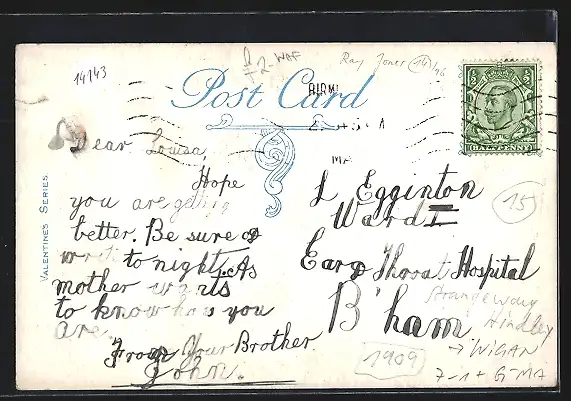 14143
£2 WAF
Ray Jones (14)/96
BIRMI
Post Card
HALFPENNY
MA
VALENTINES SERIES.
Dear Louisa,
Hope
you are getting
better. Be sure &
write to night. As
mother wants
to know how you
are.
From Your Brother
John.
L Egginton
Ward I
Ear & Throat Hospital
B'ham
15
Strangeways
Hindley
→ WIGAN
1909